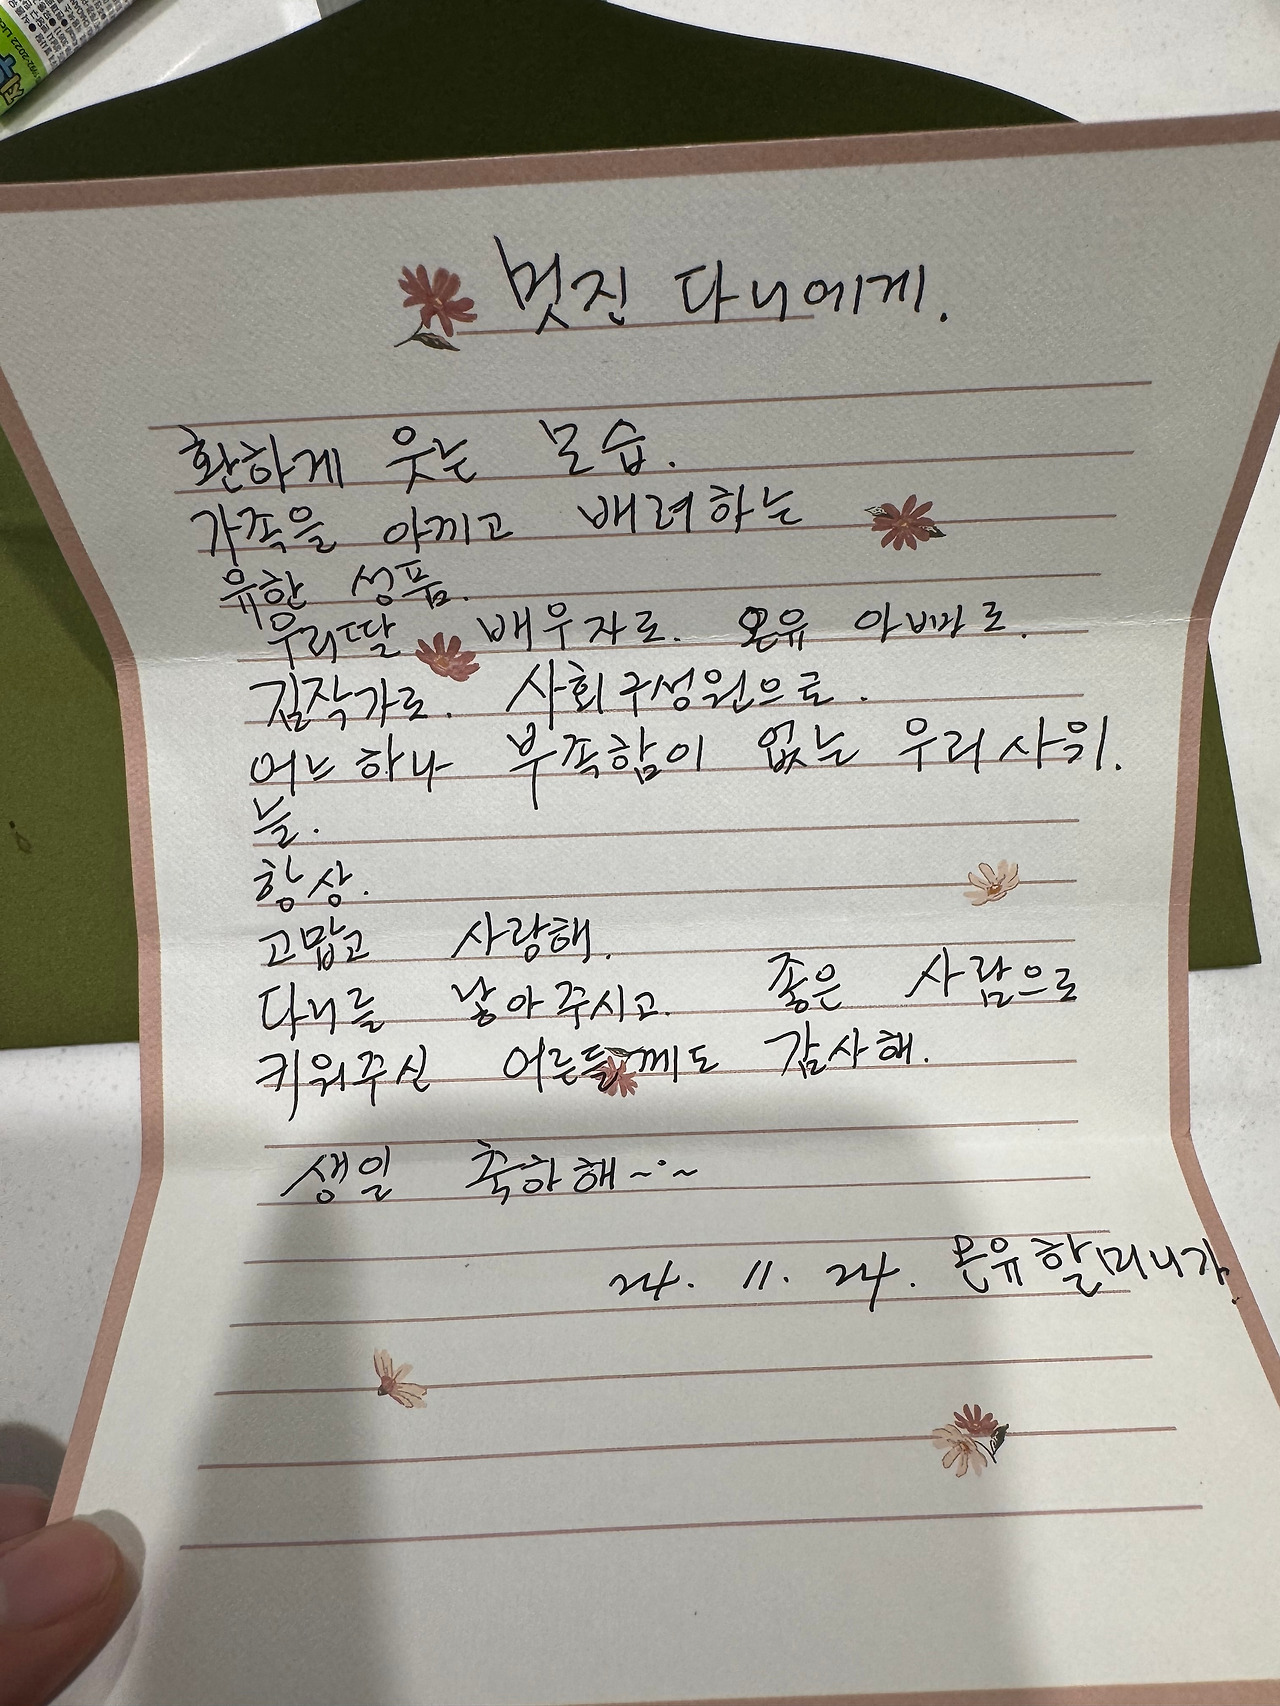 멋진 다니에게.
환하게 웃는 모습.
가족을 아끼고 배려하는
유한 성품.
우리딸 배우자로. 온유 아빠로.
김작가로. 사회구성원으로.
어느하나 부족함이 없는 우리사위.
늘.
항상.
고맙고 사랑해.
다니를 낳아주시고. 좋은 사람으로
키워주신 어른들께도 감사해.
생일 축하해~·~
24. 11. 24. 온유할머니가.